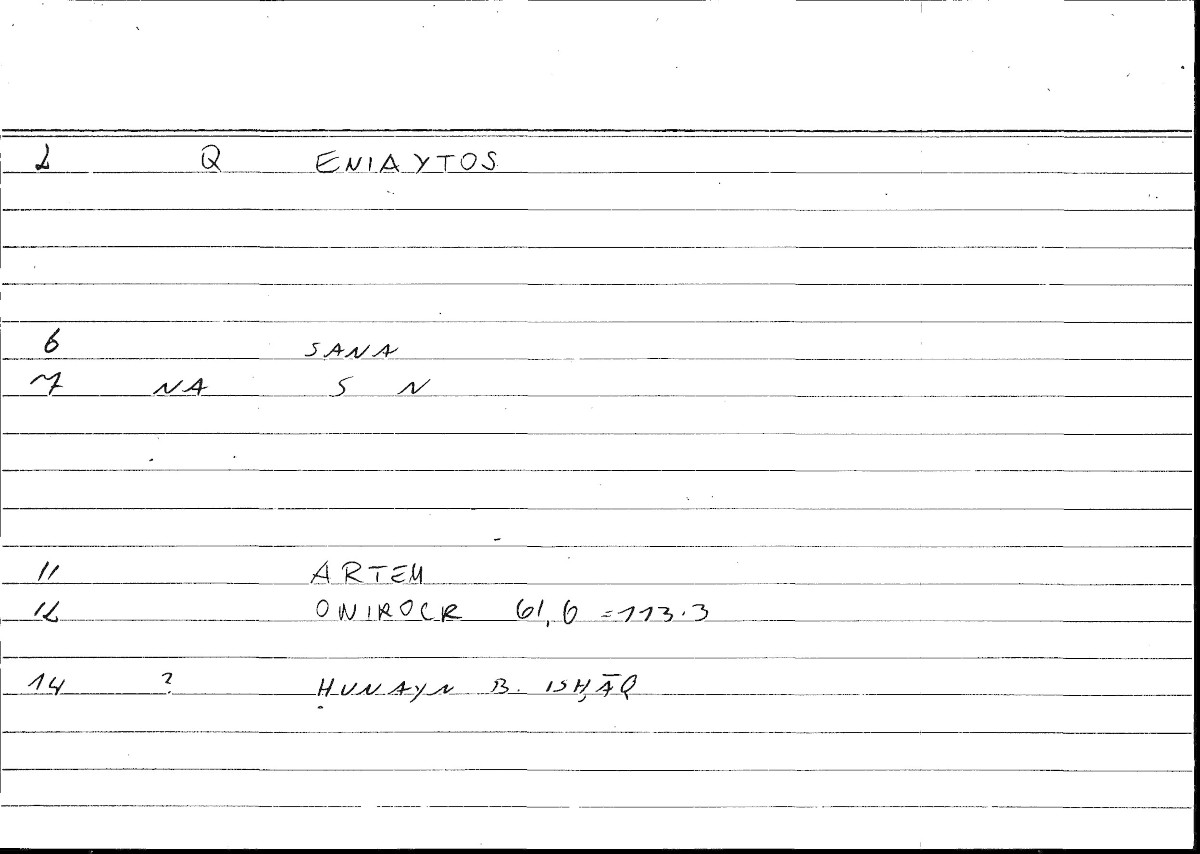 2 Q ENIAYTOS
6 SANA
7 NA S N
11 ARTEM
12 ONIROCR 61,6 =113.3
14 ? ḤUNAYN B. ISḤĀQ